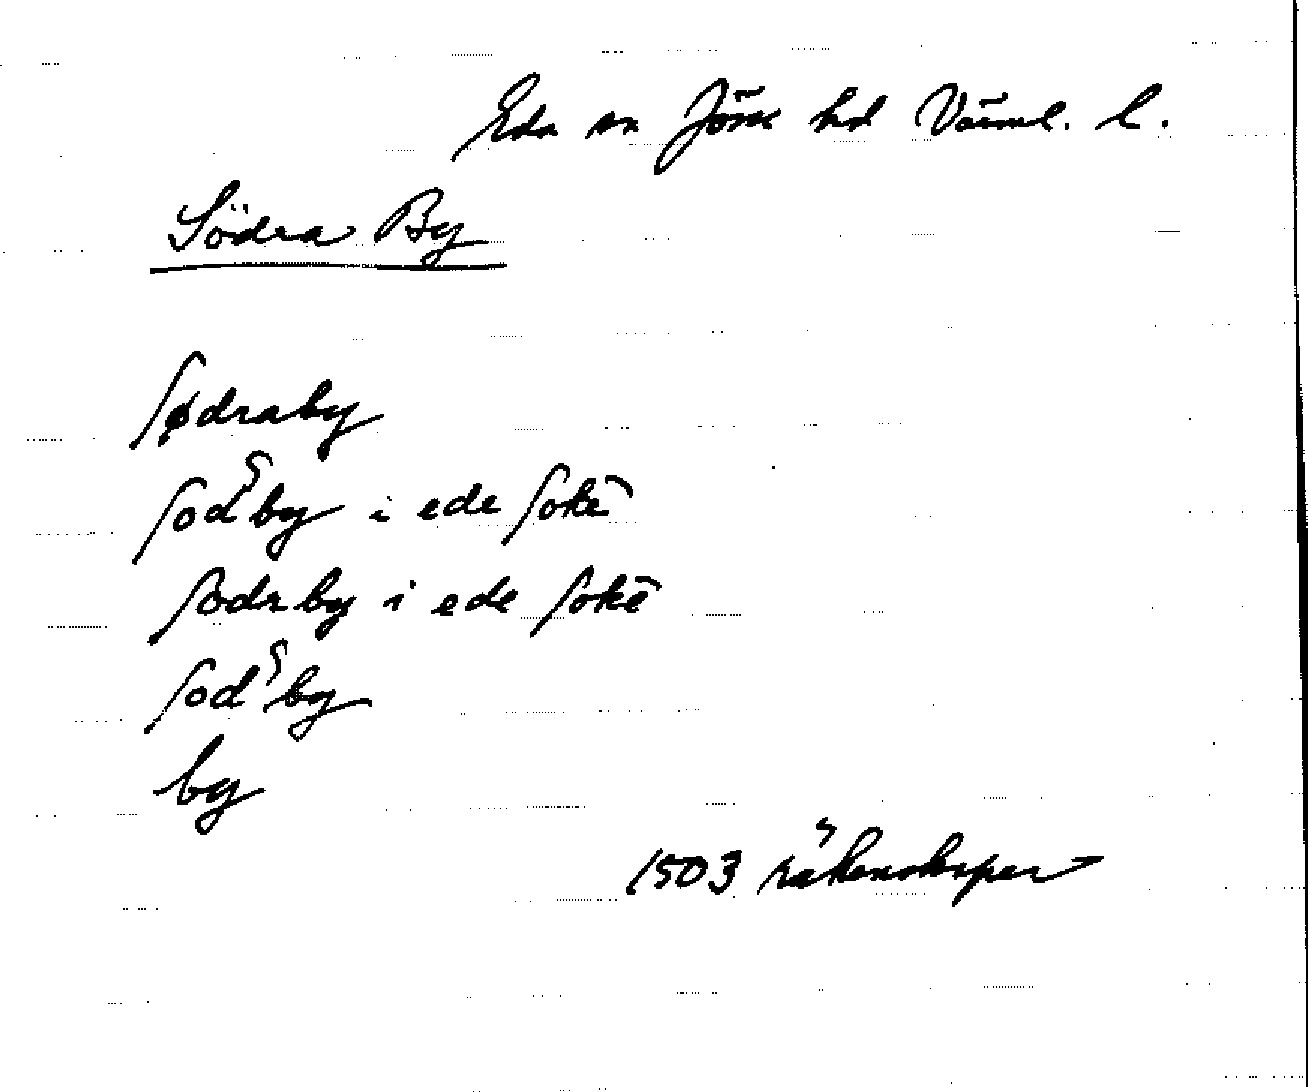 Eda sn Jöss hd Värml. l.
Södra By
ſødraby
ſodꝭby i ede ſokē
ſodrby i ede ſokē
ſodꝭby
by
1503 räkenskaper